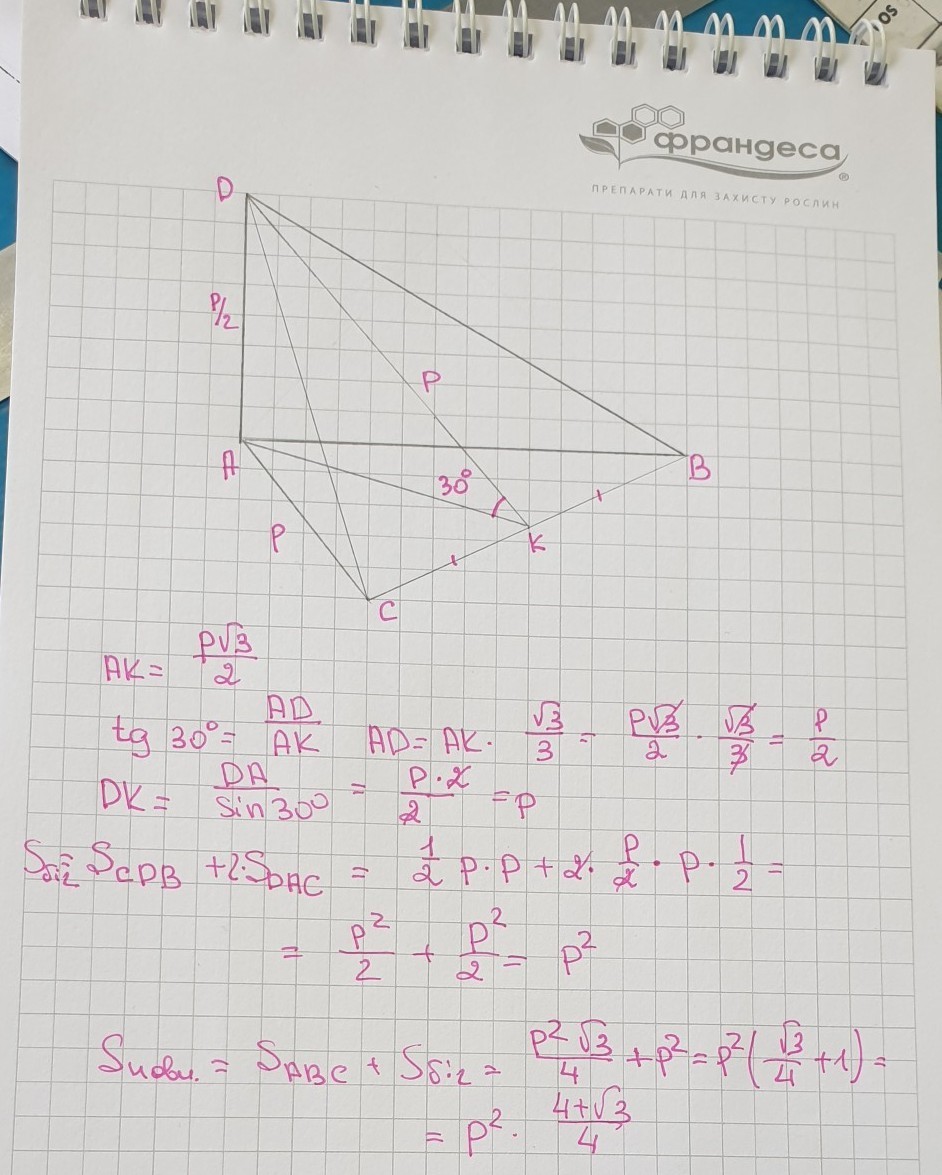 SO
франдеса®
ПРЕПАРАТИ ДЛЯ ЗАХИСТУ РОСЛИН
D
P/2
P
A
30°
B
K
P
C
AK = P√3/2
tg 30° = AD/AK AD = AK · √3/3 = P√3/2 · √3/3 = P/2
DK = DA/sin 30° = P·2/2 = P
Sбіч = SCDB + 2·SDAC = 1/2 P·P + 2· P/2 · P · 1/2 =
= P²/2 + P²/2 = P²
Sповн. = SABC + Sбіч = P²√3/4 + P² = P²(√3/4 + 1) =
= P² · 4+√3/4